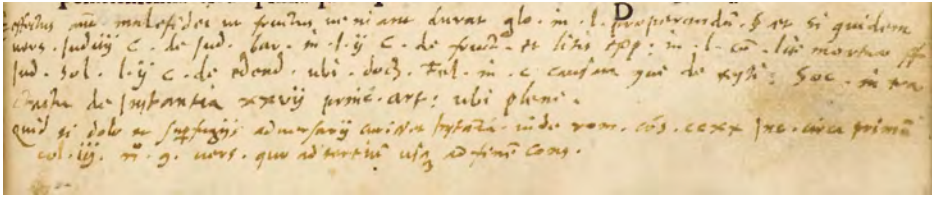 effectus aut malefidei ut fructus veniant durat glo. in. l. properandũ. § et si quidem
vers. Judicij C. de Jud. bar. in. l. ij C. de fruct. et litis exp: in. l. cũ. lite mortua ff
Jud. sol. l. ij C. de edend. ubi. doct. Fel. in. c. causam que de rescri: Soc. in tra
ctatu de Instantia xxvij princ. art: ubi plene.
Quid si dolo et suffugijs adversarij currisset Instãtia. vide rom. cõs. ccxx Inc. circa primũ
col. iij. vers. quo ad tertiũ usq3 ad finẽ cons.